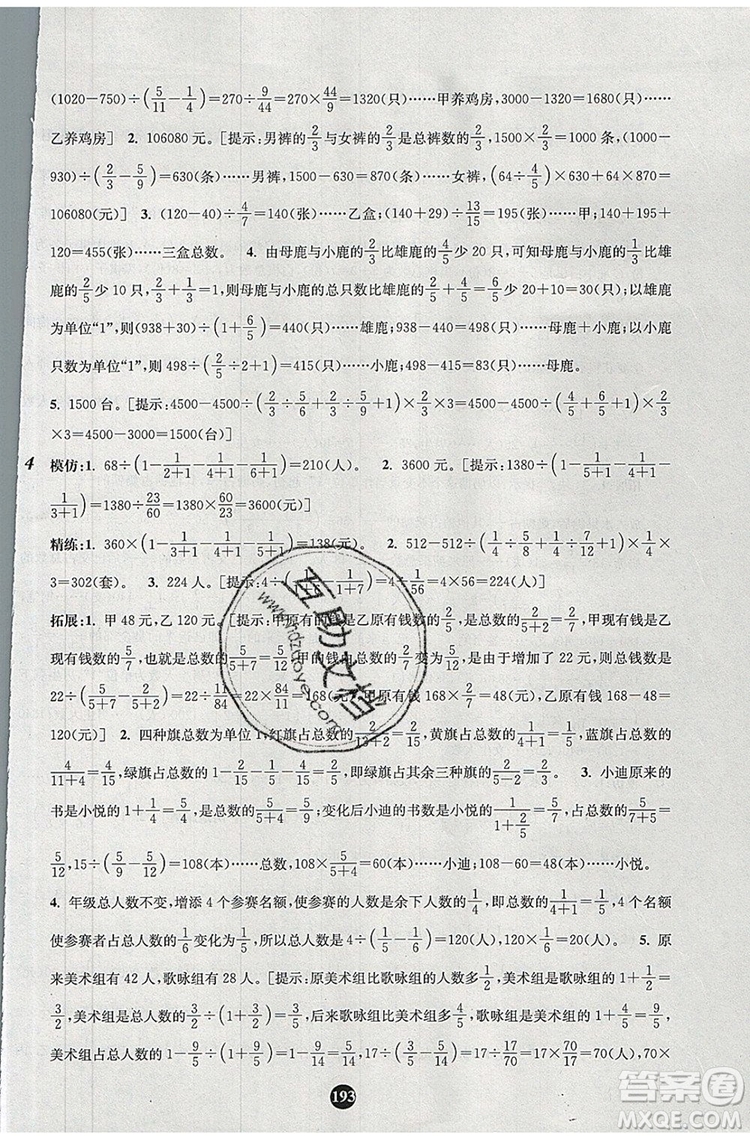 (1020-750)÷(5/11-1/4)=270÷9/44=270×44/9=1320(只)……甲养鸡房，3000-1320=1680(只)……
乙养鸡房] 2. 106080 元。[提示:男裤的2/3与女裤的2/3的是总裤数的2/3，1500×2/3=1000(条)，(1000-
930)÷(2/3-5/9)=630(条)……男裤，1500-630=870(条)……女裤，(64÷4/5)×630+64×870=
106080(元)] 3. (120-40)÷4/7=140(张)……乙盒；(140+29)÷13/15=195(张)……甲；140+195+
120=455(张)……三盒总数。 4. 由母鹿与小鹿的2/3比雄鹿的4/5少 20 只，可知母鹿与小鹿的1/3比雄
鹿的2/5少 10 只，2/3+1/3=1(只)，则母鹿与小鹿的总只数比雄鹿的4/5+2/5=6/5少 20+10=30(只)；以雄鹿
为单位“1”，则(938+30)÷(1+6/5)=440(只)……雄鹿；938-440=498(只)……母鹿+小鹿；以小鹿
只数为单位“1”，则 498÷(2/5÷2+1)=415(只)……小鹿；498-415=83(只)……母鹿。
5. 1500 台。[提示:4500-4500÷(2/3+5/6+5/9+1)×2/3×3-4500÷(2/3+4/5+5/6+1)
×2/3×3=4500-3000=1500(台)]
4 模仿:1. 68÷(1-1/2+1-1/4+1-1/6+1)=210(人)。 2. 3600 元。[提示:1380÷(1-1/2+1-1/4+1-
1/3+1)=1380÷23/60=1380×60/23=3600(元)]
精练:1. 360×(1-1/3+1-1/4+1-1/5+1)=138(元)。 2. 512-512÷(1/5+1/4÷1/5+7/12+1)×1/4×
3=302(套)。 3. 224 人。[提示:4÷(1/1+6-1/1+7)=4÷1/56=4×56=224(人)]
拓展:1. 甲 48 元，乙 120 元。[提示:甲原有的钱是乙原有钱数的2/5，是总数的2/5+2=2/7，甲现有钱是乙
现有钱数的5/7，是总数的5/5+7=5/12，甲的钱由总数的2/7变为5/12，是由于增加了 22 元，所以总钱数是
22÷(5/5+7-2/5+2)=22÷11/84=22×84/11=168(元)，甲原有钱 168×2/7=48(元)，乙原有钱 168-48=
120(元)] 2. 四种旗总数为单位 1，红旗占总数的2/13+2=2/15，黄旗占总数的1/4+1=1/5，蓝旗占总数的
4/11+4=4/15，绿旗占总数的1-2/15-1/5-4/15=2/5，即绿旗占其余三种旗的2/5-2=2/3。 3. 小迪原来的
书是小悦的 1+1/4=5/4，占总数的5/5+4=5/9；变化后小迪的书数是小悦的1/1+2/5=5/7，占总数的5/7+5=
5/12，15÷(5/9-5/12)=108(本)……总数，108×5/5+4=60(本)……小迪；108-60=48(本)……小悦。
4. 年级总人数不变，增添 4 个参赛名额，使参赛的人数是余下人数的1/4，即总数的1/4+1=1/5，4 个名额
使参赛者占总人数的1/6变化为1/5，所以总人数是 4÷(1/5-1/6)=120(人)，120×1/5=24(人)。 5. 原
来美术组有 42 人，歌咏组有 28 人。[提示:原美术组比歌咏组的人数多1/2，美术组是歌咏组的 1+1/2=
3/2，美术组是总人数的3/2÷(1+3/2)=3/5，后来歌咏组比美术组多4/5，歌咏组是美术组的 1+4/5=9/5，
美术组占总人数的 1-9/5÷(1+9/5)=1-9/14=5/14，17÷(3/5-5/14)=17÷17/70=17×70/17=70(人)，70×
193
互助文档
www.hdzuoye.com
答案圈
MXQE.COM